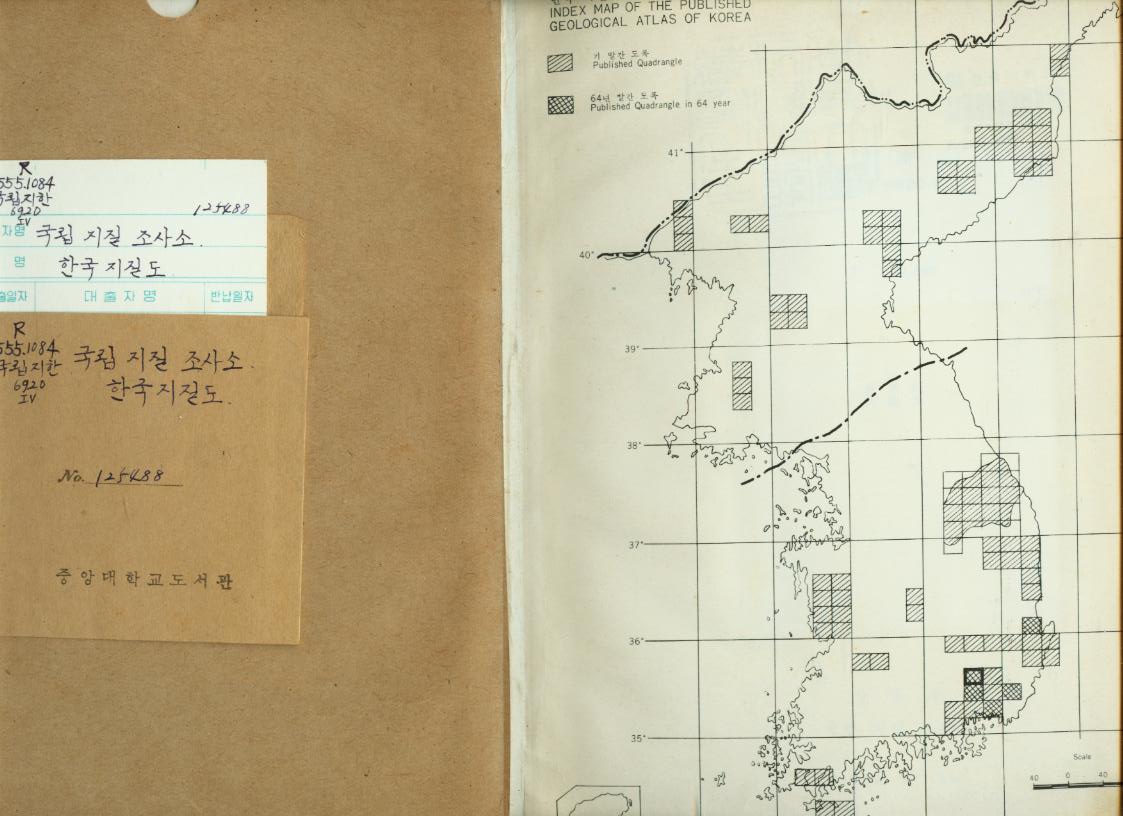 R
555.1084
국립지한
6920
IV
125488
자명 국립 지질 조사소.
명 한국지질도.
출일자 대출자명 반납일자
R
555.1084
국립지한
6920
IV
국립 지질 조사소.
한국지질도.
No. 125488
중앙대학교도서관
INDEX MAP OF THE PUBLISHED
GEOLOGICAL ATLAS OF KOREA
기 발간 도폭
Published Quadrangle
64년 발간 도폭
Published Quadrangle in 64 year
41°
40°
39°
38°
37°
36°
35°
Scale
40 0 40